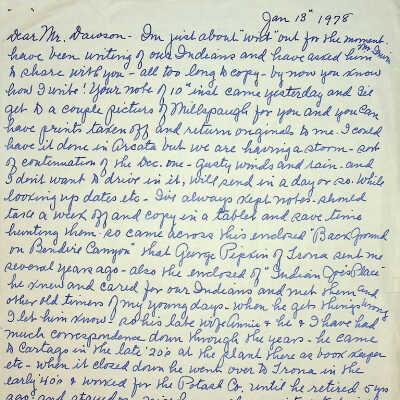 Jan 13" 1978
Dear Mr. Dawson - I'm just about "writ" out for the moment.
have been writing of our Indians and have asked him Mr Irwin
to share with you - all too long to copy - by now you know
how I write! Your note of 10" inst came yesterday and I'll
get to a couple pictures of Millspaugh for you and you can
have prints taken off and return originals to me. I could
have it done in Arcata but we are having a storm - sort
of continuation of the Dec. one - gusty winds and rain - and
I don't want to drive in it, will send in a day or so. While
looking up dates etc - I've always kept notes - should
take a week off and copy in a tablet and save time
hunting them - so came across this enclosed "Background
on Bendire Canyon" that George Pipkin of Trona sent me
several years ago - also the enclosed of "Indian Joe's Place"
he knew and cared for our Indians and met them and
other old timers of my young days - when he gets things wrong
I let him know - so his late wife Annie & he & I have had
much correspondence down through the years - he came
to Cartago in the late '20's at the plant there as book keeper
etc - when it closed down he went over to Trona in the
early '40's & worked for the Potash Co. until he retired 5 yrs
ago and stayed on